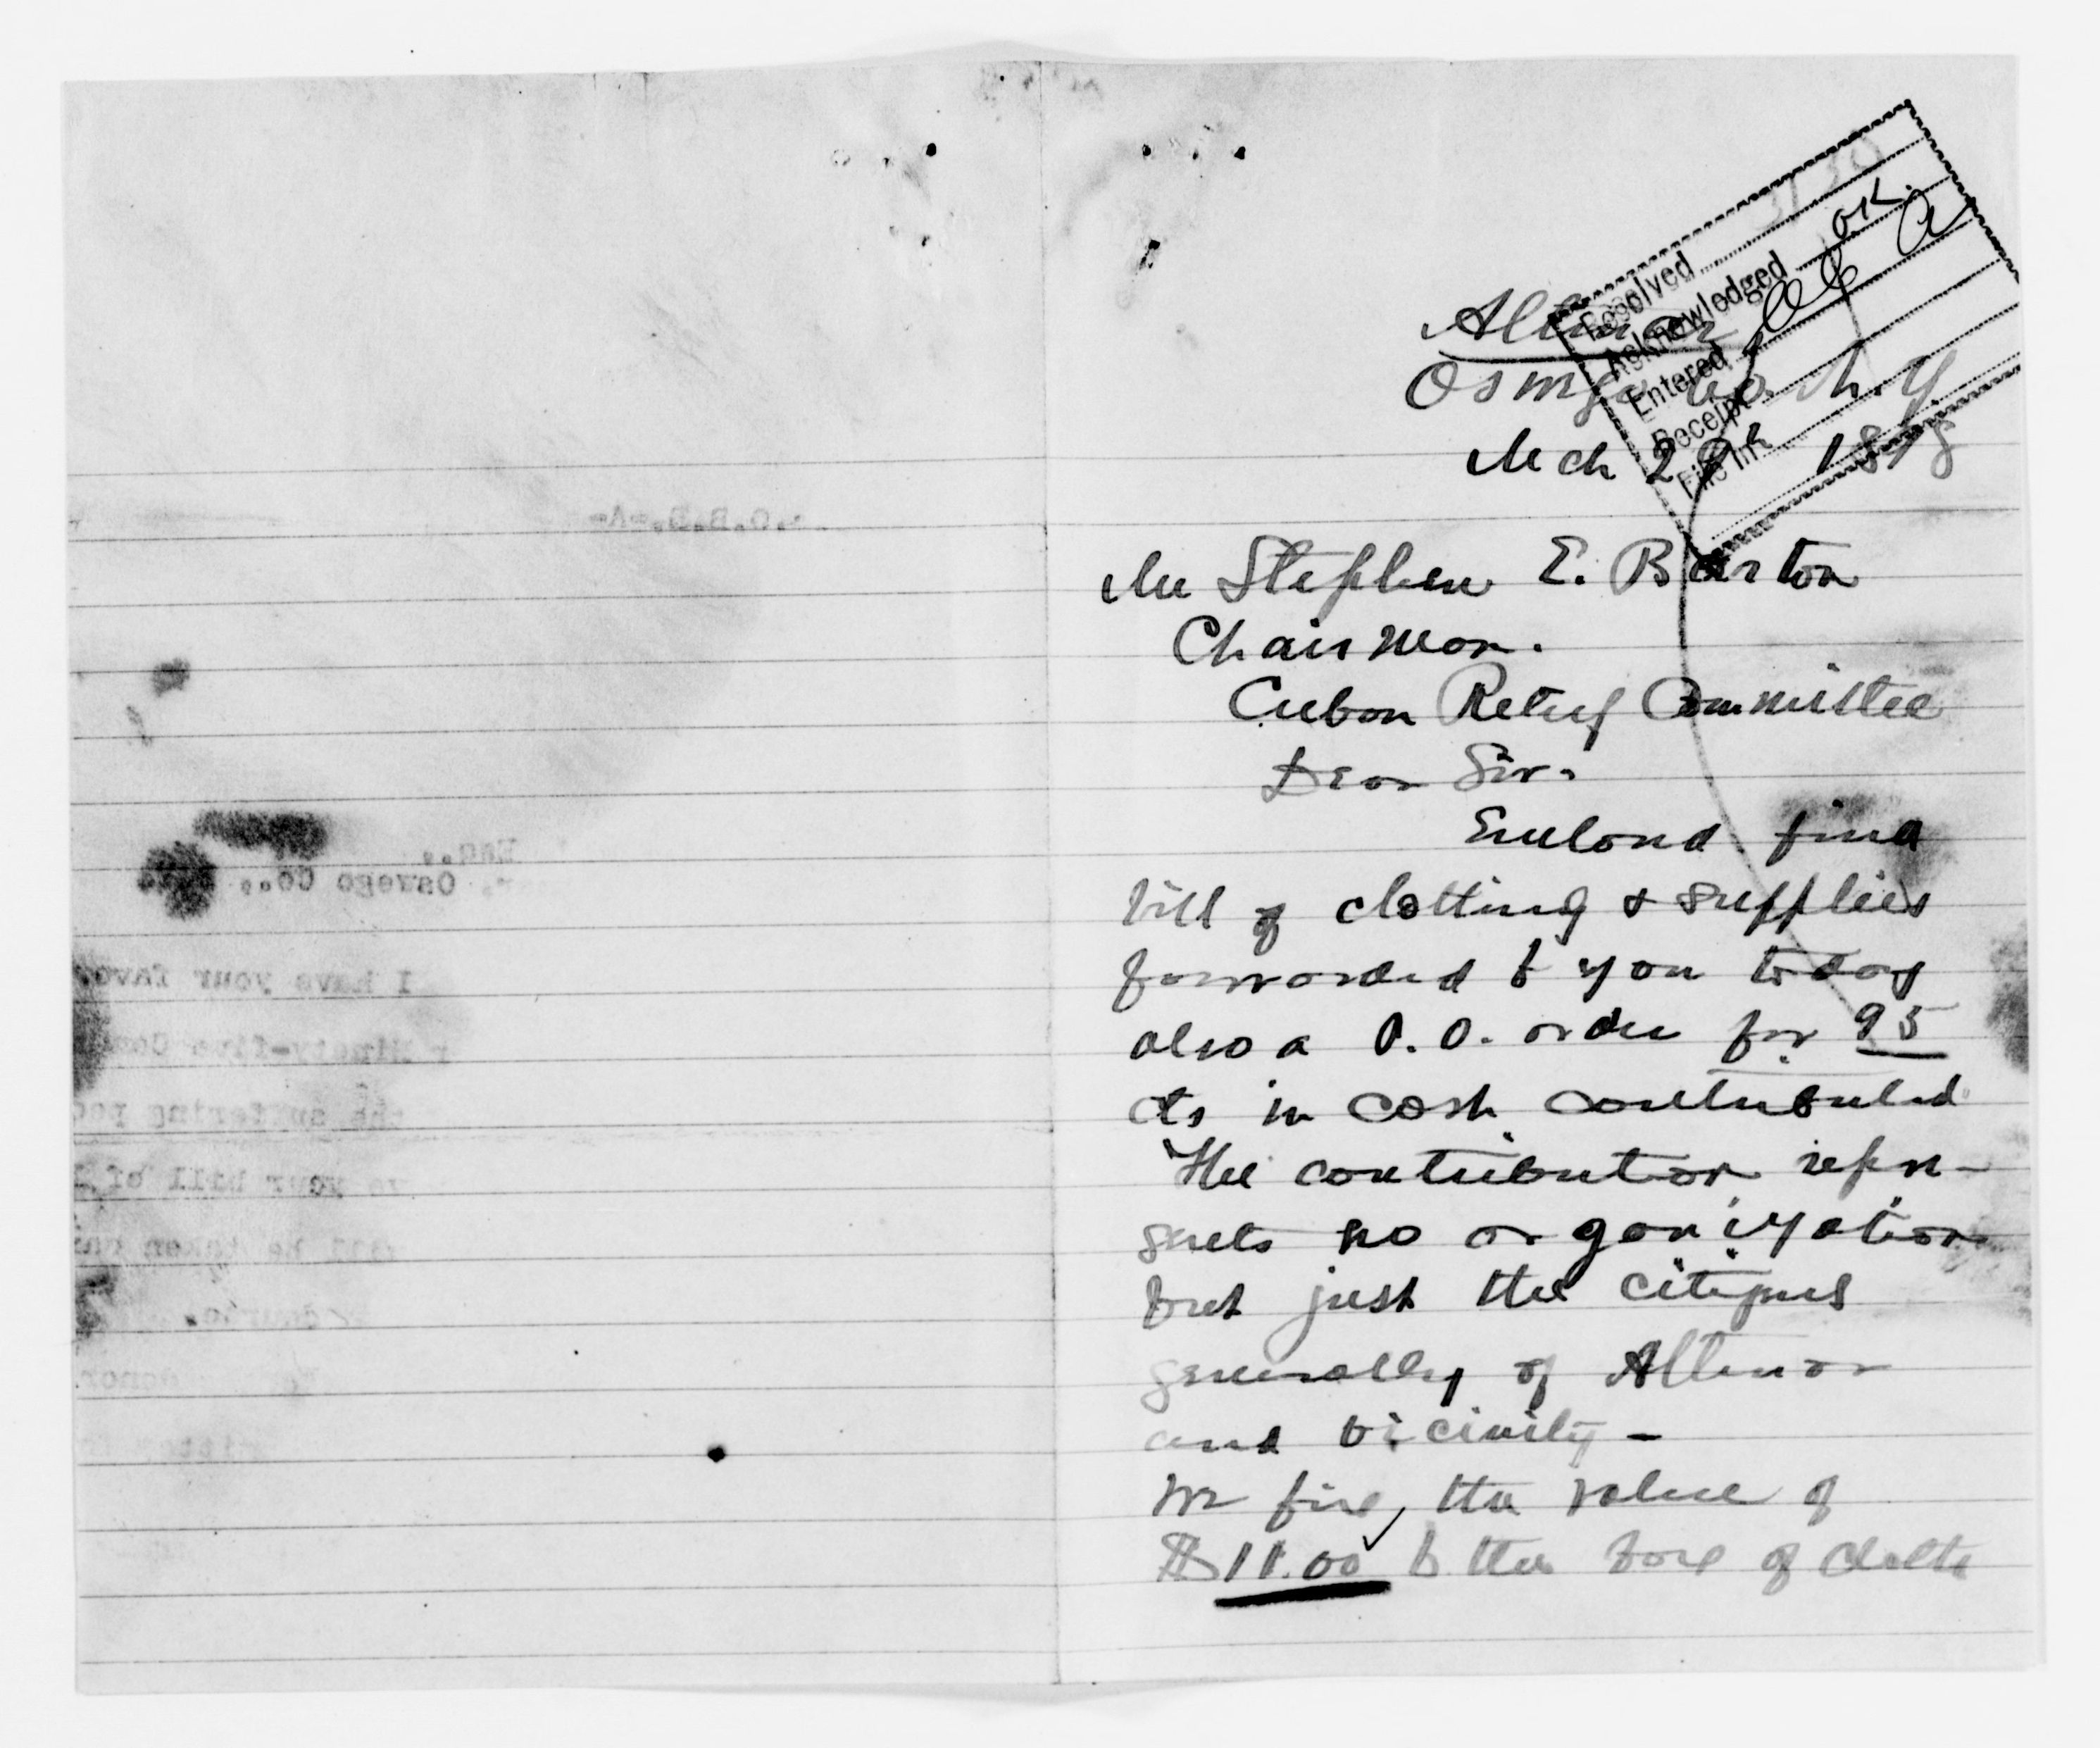 3730
Received
Acknowledged OK.
Entered
Receipt
File in
Altmar
Oswego Co. N. Y.
Mch 29th 1898
Mr Stephen E. Barton
Chairman.
Cuban Relief Committee
Dear Sir.
Enclosed find
bill of clothing & supplies
forwarded to you today
also a P. O. order for 95
cts in cash contributed
The contribution repre-
sents no organization
but just the citizens
generally of Altmar
and vicinity -
We fix, the value of
$11.00 to the box of cloth
.O.B.D.-A-
Esq.,
r. Oswego Co.,
I have your favo
r Ninety-five Cen
the suffering peo
ve your bill of
will be taken
course.
donor